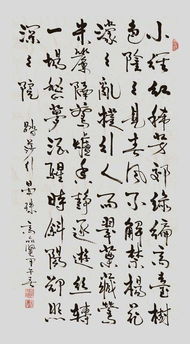 小徑紅稀芳郊綠徧高臺樹
色陰々見春風不解禁楊花
濛々亂撲行人面翠葉藏鶯
朱簾隔燕爐香靜逐遊絲轉
一場愁夢酒醒時斜陽卻照
深々院
踏莎行晏殊 甲午